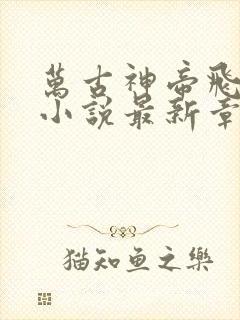 萬古神帝飛
小說最新章
猫知鱼之樂